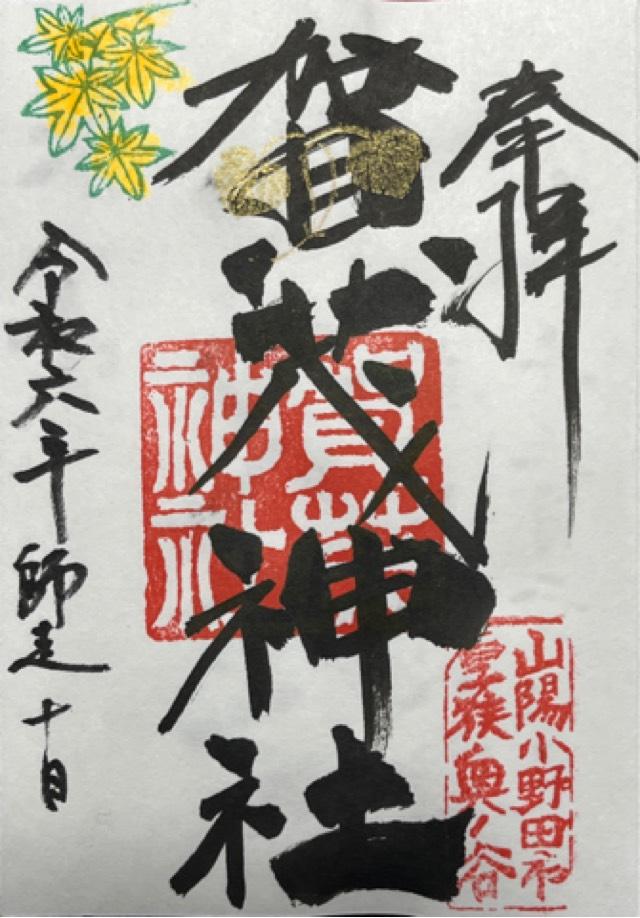 奉拝
賀茂神社
賀茂
神社
山陽小野田市
埴生奥ノ谷
令和六年師走十日